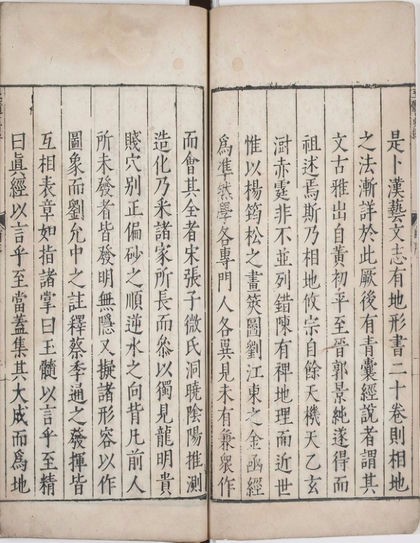 是卜漢藝文志有地形書二十卷則相地
之法漸詳於此厥後有青囊經說者謂其
文古雅出自黃初平至晉郭景純遂得而
祖述焉斯乃相地攸宗自餘天機天乙玄
澍赤霆非不並列錯陳有裨地理而近世
惟以楊筠松之畫筴圖劉江東之金函經
爲準然學各專門人各異見未有兼衆作
而會其全者宋張子微氏洞曉陰陽推測
造化乃采諸家所長而叅以獨見龍明貴
賤穴别正偏砂之順逆水之向背凡前人
所未發者皆發明無隱又擬諸形容以作
圖象而劉允中之註釋蔡季通之發揮皆
互相表章如指諸掌曰玉髓以言乎至精
曰眞經以言乎至當蓋集其大成而爲地